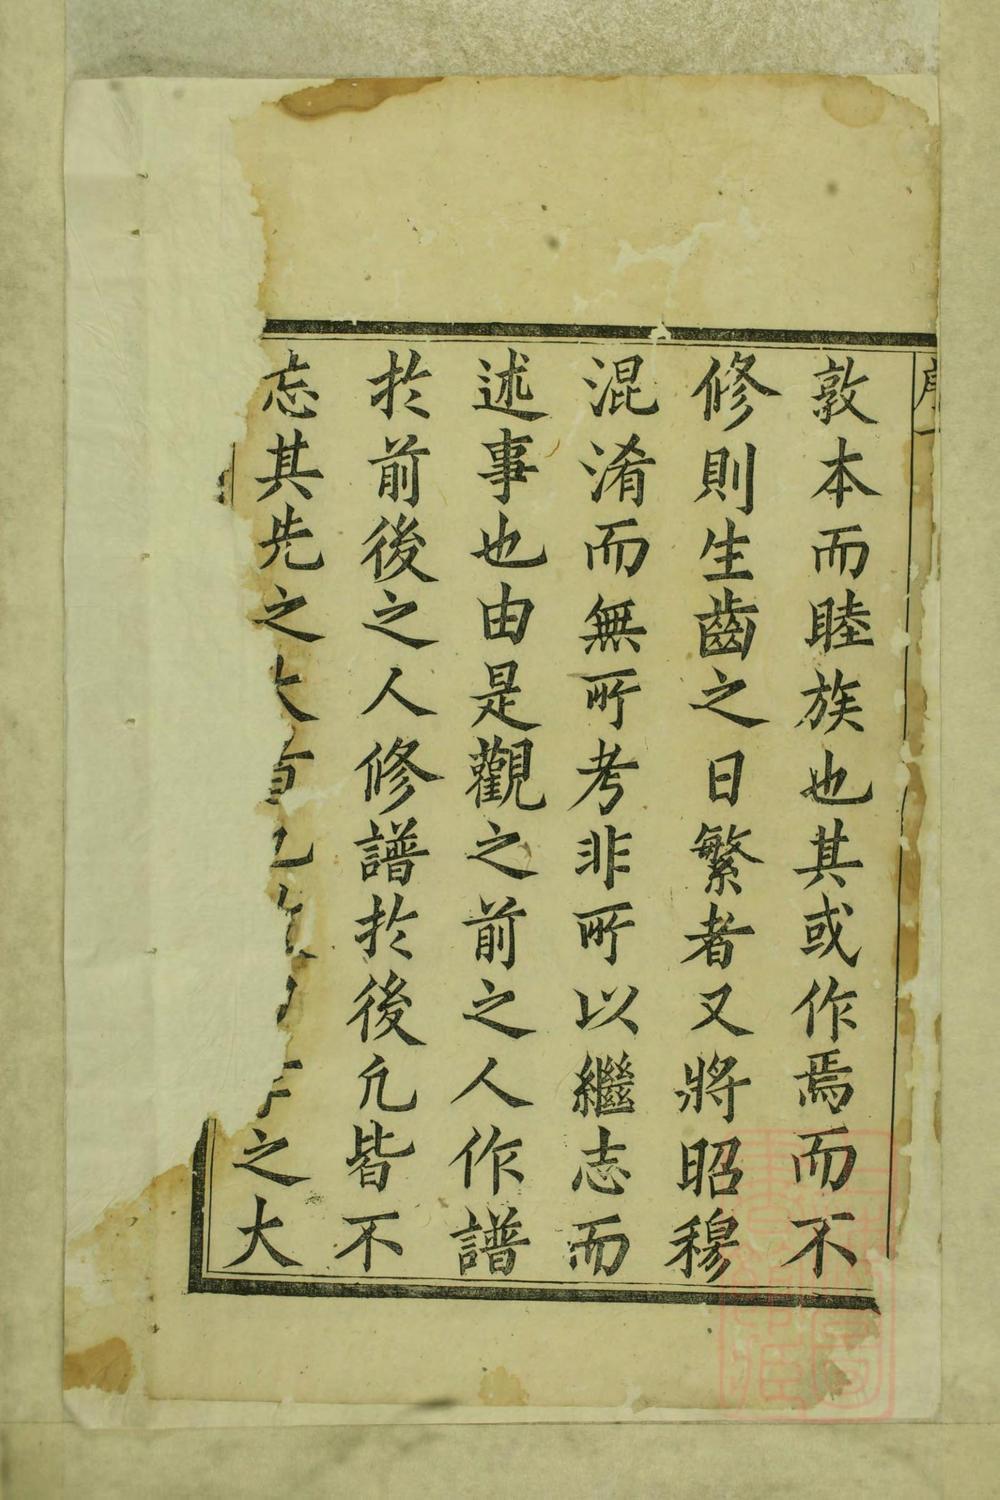 序一
敦本而睦族也其或作焉而不
修則生齒之日繁者又將昭穆
混淆而無所考非所以繼志而
述事也由是觀之前之人作譜
於前後之人修譜於後凢皆不
忘其先之大
之大